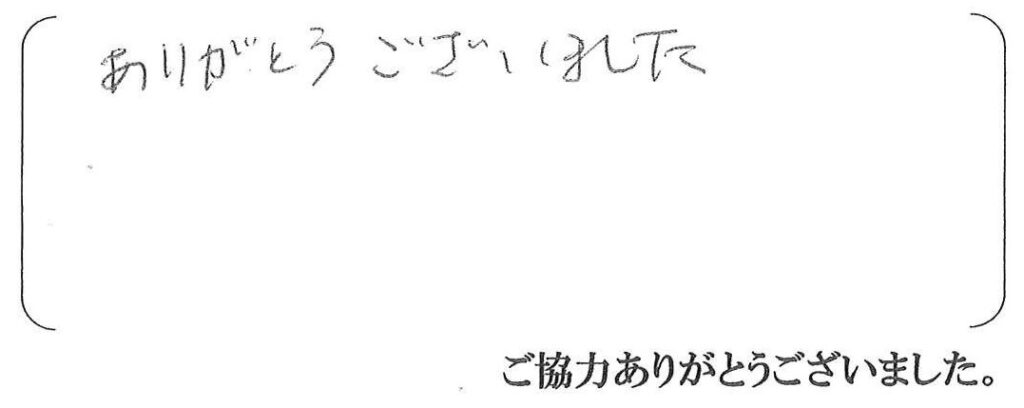 ありがとうございました
ご協力ありがとうございました。